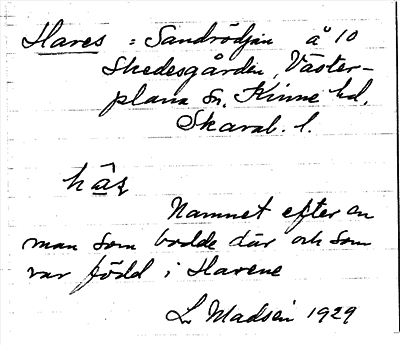 Hares = Sandrödjan å 10
Skedesgården, Väster-
plana Sn, Kinne hd,
Skarab. l.
Namnet efter en
man som bodde där och som
var född i Harene
L Madsen 1929